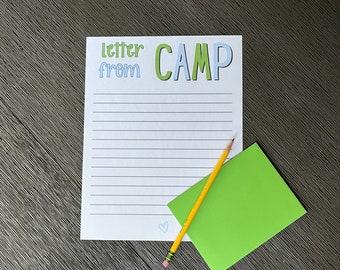 letter
from CAMP